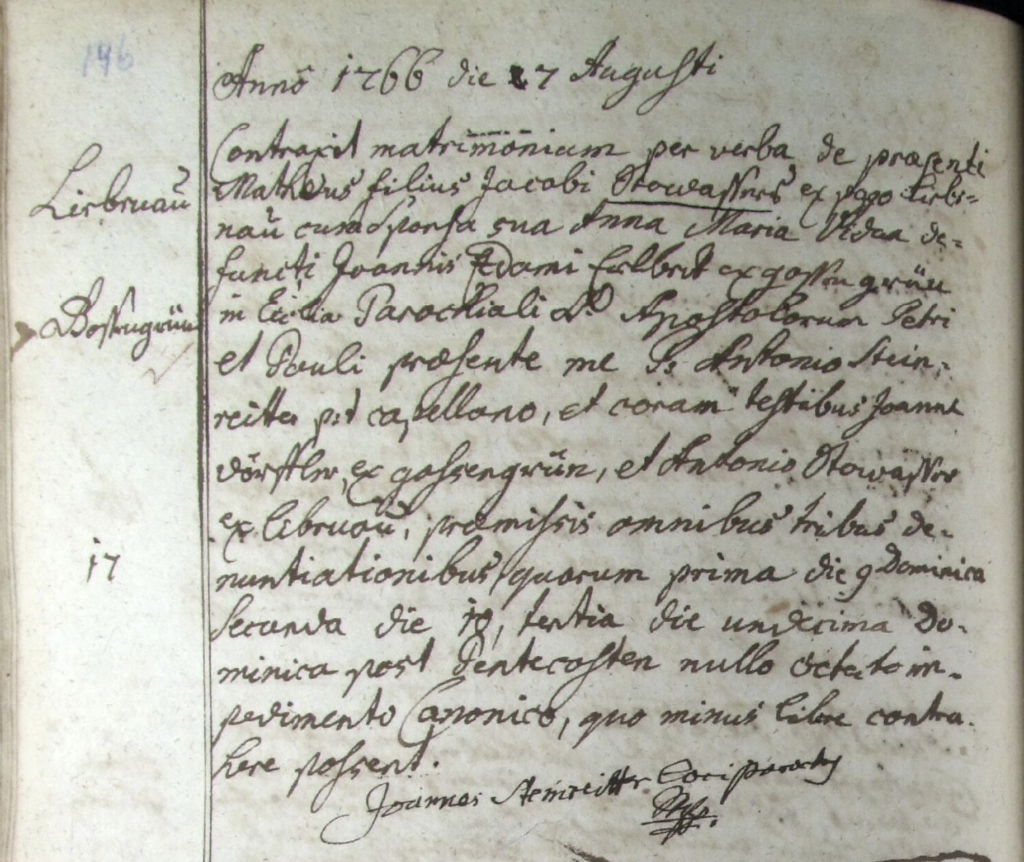 196
Anno 1766 die 27 Augusti
Contraxit matrimonium per verba de præsenti
Liebnau
Matheus filius Jacobi Stowassers ex pago Lieb=
nau cum sponsa sua Anna Maria Vidua de=
functi Joannis Adami ex gossengrün
Gossengrün
in Ecclia Parochiali Apostolorum Petri
et Pauli præsente me Antonio Stein=
reitter p:t capellano, et coram testibus Joanne
dörffler, ex gossengrün, et Antonio Stowasser
ex liebnau, præmissis omnibus tribus de=
17
nuntiationibus, quarum prima die 9 Dominica
secunda die 10, tertia die undecima Do=
minica post Pentecosten nullo detecto im=
pedimento Canonico, quo minus libere contra=
here possent.
Joannes Steinreitter Loci parochus